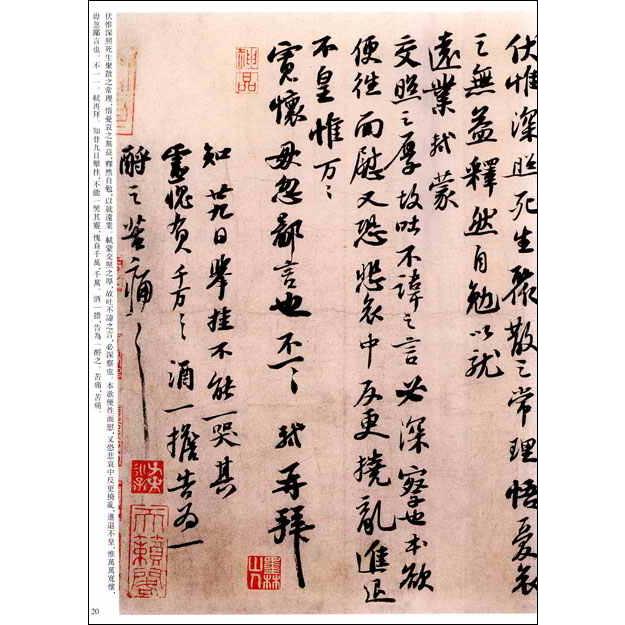 伏惟深照死生聚散之常理悟憂哀
之無益釋然自勉以就
遠業軾蒙
交照之厚故吐不諱之言必深察也本欲
便往面慰又恐悲哀中反更撓亂進退
不皇惟万々
寬懷毋忽鄙言也不一々軾再拜
知廿九日舉挂不能一哭其
靈愧負千万々酒一擔告為一
酹之苦痛々
神品
墨林山人
天籟閣
伏惟深照死生聚散之常理，悟憂哀之無益，釋然自勉，以就遠業。軾蒙交照之厚，故吐不諱之言，必深察也。本欲便往面慰，又恐悲哀中反更撓亂，進退不皇，惟萬萬寬懷，
毋忽鄙言也。不一一。軾再拜。知廿九日舉挂，不能一哭其靈，愧負千萬、千萬。酒一擔，告為一酹之。苦痛，苦痛。
20